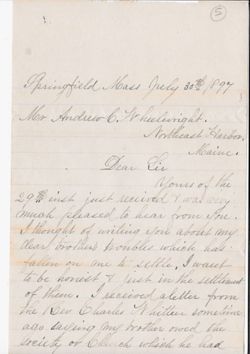 5
Springfield Mass July 30th 1897
Mr Andrew C. Wheelwright.
Northeast Harbor.
Maine.
Dear Sir
Yours of the
29th inst just recived & was very
much pleased to hear from you.
I thought of writing you about my
dear brothers troubles which has
fallen on me to settle. I want
to be honest & just in the settlement
of them. I received a letter from
the Rev Charles Whitten sometime
ago saying my brother owed the
society or Church which he had